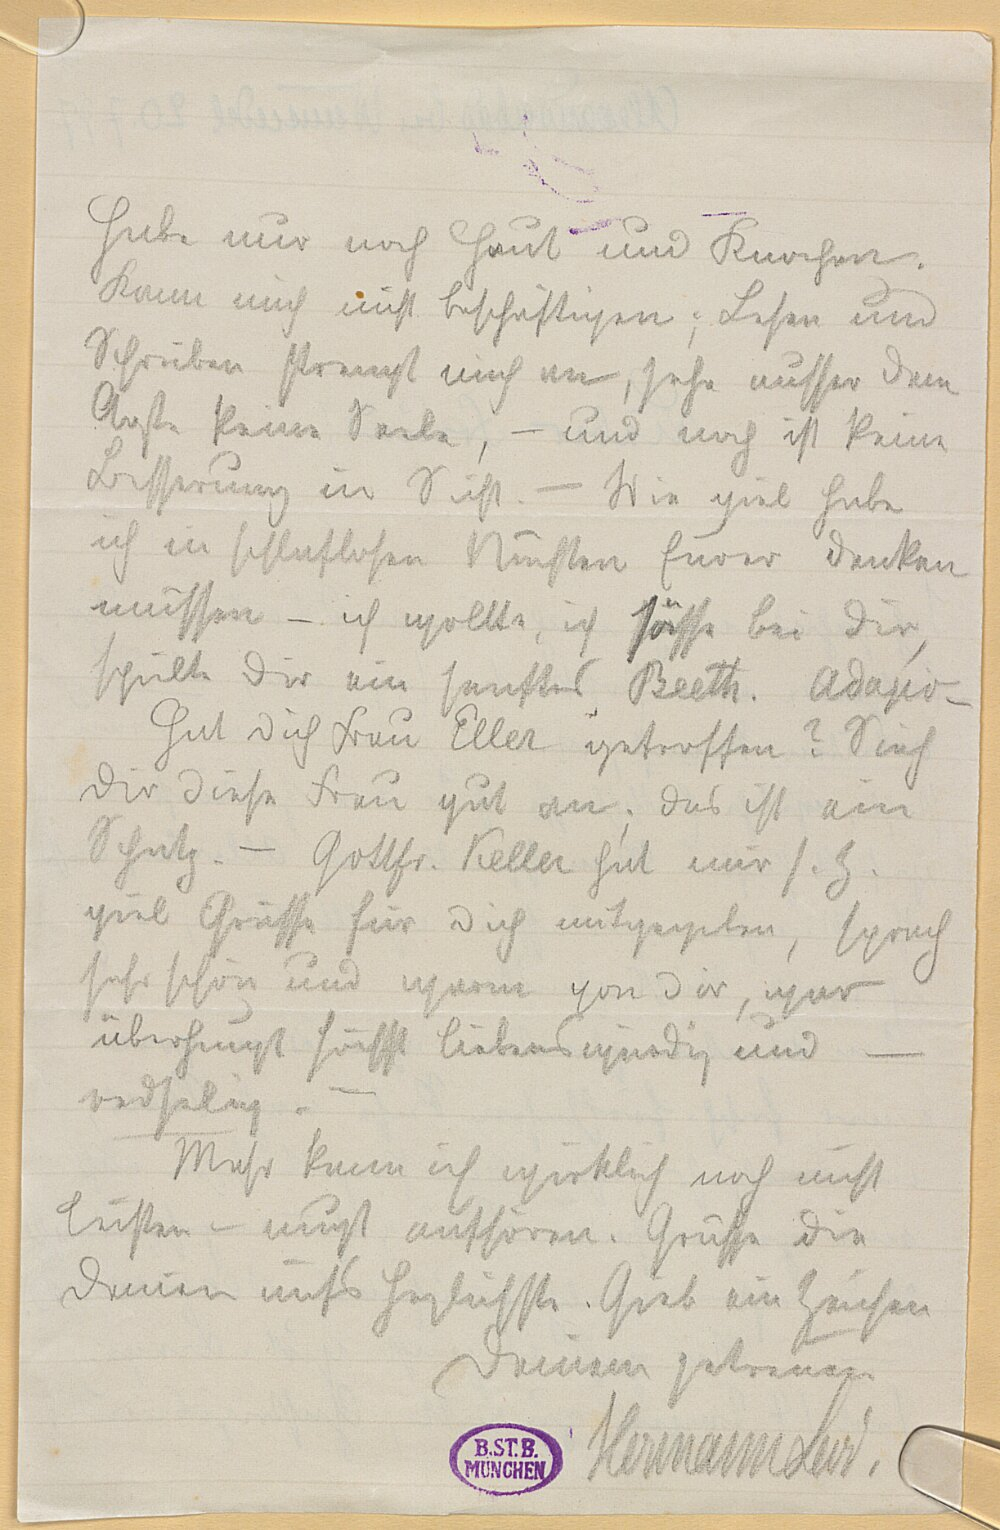 Habe nur noch Haut und Knochen.
Kann mich nicht beschäftigen; Lesen und
Schreiben strengt mich an, sehe ausser dem
Arzte keine Seele, – und noch ist keine
Besserung in Sicht. – Wie viel habe
ich in schlaflosen Nächten Eurer denken
müssen – ich wollte, ich sässe bei Dir,
spielte Dir ein sanftes Beeth. Adagio –
Hat Dich Frau Eller getroffen? Sieh
Dir diese Frau gut an; das ist ein
Schatz. – Gottfr. Keller hat mir s. Z.
viel Grüsse für Dich mitgegeben, sprach
sehr schön und warm von Dir, war
überhaupt höchst liebenswürdig und —
redselig. –
Mehr kann ich wirklich noch nicht
leisten – muss aufhören. Grüsse die
Deinen aufs Herzlichste. Gieb ein Zeichen
Deinem getreuen
Hermann Levi.
B.ST.B.
MÜNCHEN